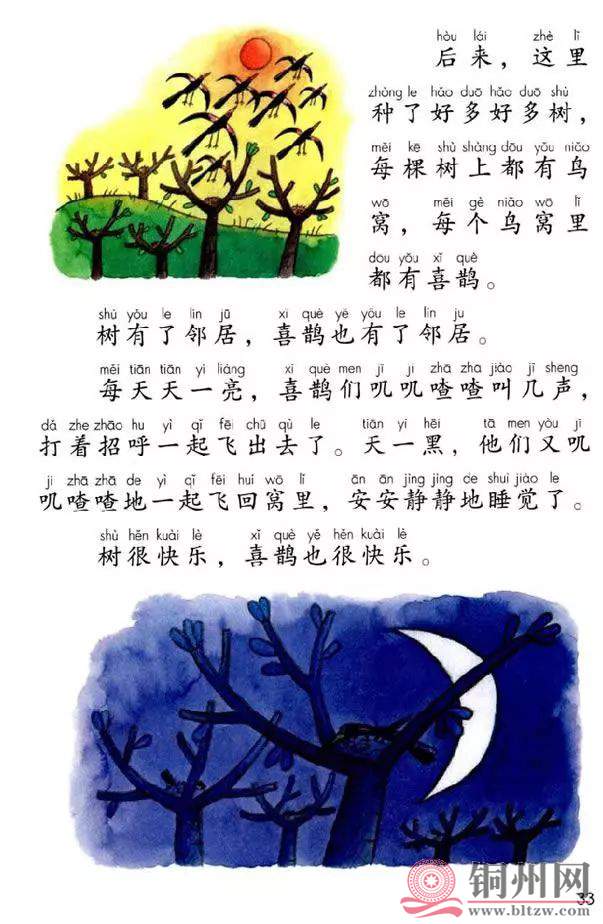 hòu lái zhè lǐ
后来，这里
zhòng le hǎo duō hǎo duō shù
种了好多好多树，
měi kē shù shàng dōu yǒu niǎo
每棵树上都有鸟
wō měi gè niǎo wō lǐ
窝，每个鸟窝里
dōu yǒu xǐ què
都有喜鹊。
shù yǒu le lín jū xǐ què yě yǒu le lín jū
树有了邻居，喜鹊也有了邻居。
měi tiān tiān yí liàng xǐ què men jī jī zhā zhā jiào jǐ shēng
每天天一亮，喜鹊们叽叽喳喳叫几声，
dǎ zhe zhāo hu yì qǐ fēi chū qù le tiān yì hēi tā men yòu jī
打着招呼一起飞出去了。天一黑，他们又叽
jī zhā zhā de yì qǐ fēi huí wō lǐ ān ān jìng jìng de shuì jiào le
叽喳喳地一起飞回窝里，安安静静地睡觉了。
shù hěn kuài lè xǐ què yě hěn kuài lè
树很快乐，喜鹊也很快乐。
33
铜州网
www.bltzw.com